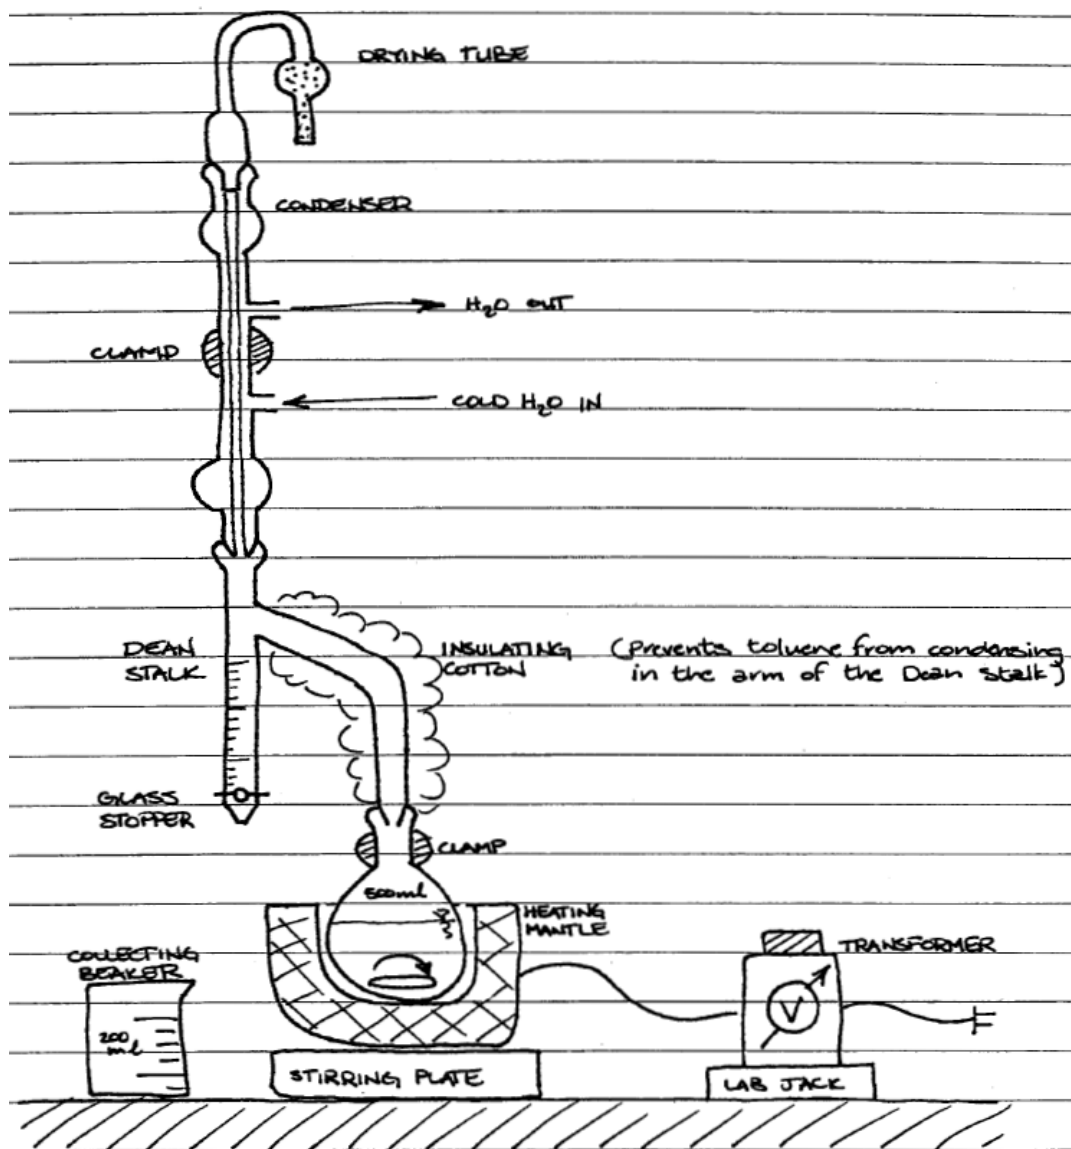 DRYING TUBE
CONDENSER
H₂O OUT
CLAMP
COLD H₂O IN
DEAN
STALK
INSULATING
COTTON
(Prevents toluene from condensing
in the arm of the Dean Stalk)
GLASS
STOPPER
CLAMP
500ml
HEATING
MANTLE
COLLECTING
BEAKER
TRANSFORMER
200
ml
V
STIRRING PLATE
LAB JACK